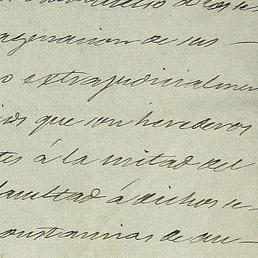 de los
agenacion de sus —
o extrajudicialmen
que son herederos
tes á la mitad del
facultad á dichos se
constancias de au —